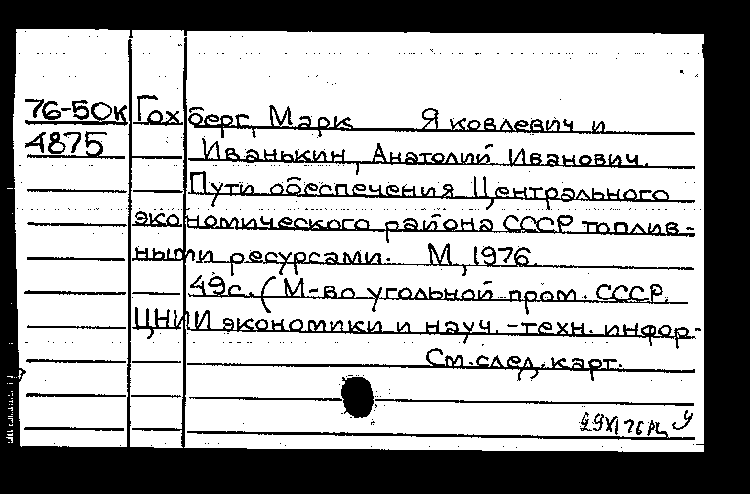 76-50к Гохберг, Марк Яковлевич и
4875 Иванькин, Анатолий Иванович.
Пути обеспечения Центрального
экономического района СССР топлив-
ными ресурсами. М., 1976.
49с. (М-во угольной пром. СССР.
ЦНИИ экономики и науч.-техн. инфор-
См. след. карт.